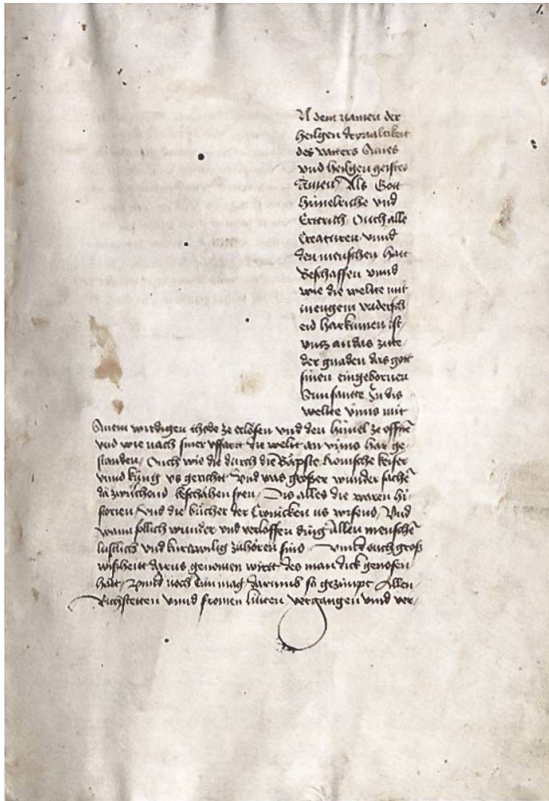 N dem namen der
heilgen dryualtikeit
des vatters Sunes
und heilgen geistes
Amen Als Gott
himelriche vnd
Ertrich Ouch alle
Creaturen vnnd
den menschen hatt
Beschaffen vnnd
wie die wellte mit
mengem vndersch
eid harkumen ist
vntz an das zitte
der gnaden das gott
sinen eingebornen
Sun sante In dis
wellte vnns mit
Sinem wirdigen thode ze erlösen vnd den himel ze offnē
vnd wie nach siner vffart die welt an vnns har ge
standen Ouch wie die durch die Bäpste Romische keiser
vnnd küng vs gericht Vnd was großer wunder sachē
da zwüschend beschähen syen Dis alles die waren hi
storien vnd die bücher der Cronicken us wisend Vnd
wann söllich wunder vnd verloffen ding Allen menschē
lustlich vnd kurtzwilig zuhören sind vnnd ouch groß
wisheitt darus genomen wirtt des man dick genosen
hatt Vnnd noch tun mag Darumb so gezimpt Allen
Richstetten vnnd fromen lütten vergangen vnnd ver